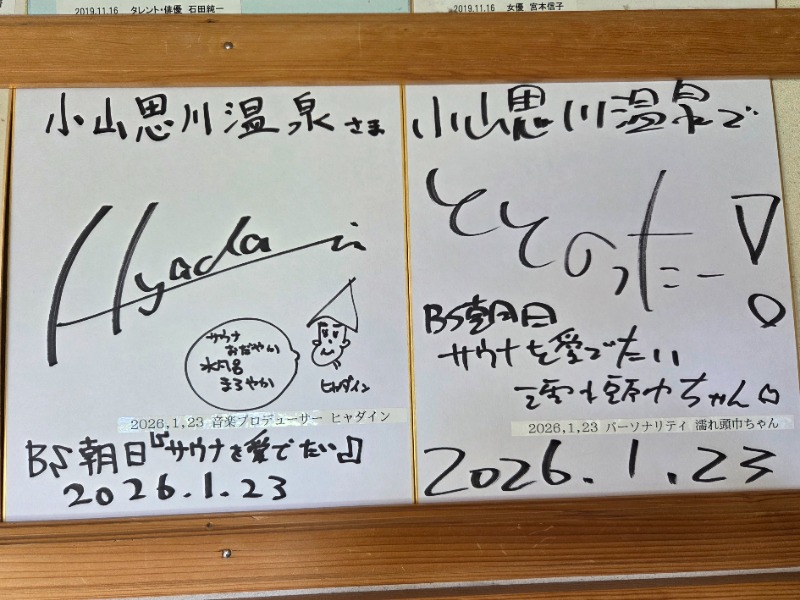 2019.11.16 タレント・俳優 石田純一
2019.11.16 女優 宮本信子
小山思川温泉さま
Hyadain
サウナ
おだやか
水風呂
まろやか
ヒャダイン
2026,1,23 音楽プロデューサー ヒャダイン
BS朝日『サウナを愛でたい』
2026.1.23
小山思川温泉で
ととのったー!
BS朝日
サウナを愛でたい
濡れ頭巾ちゃん
2026,1,23 パーソナリティ 濡れ頭巾ちゃん
2026.1.23